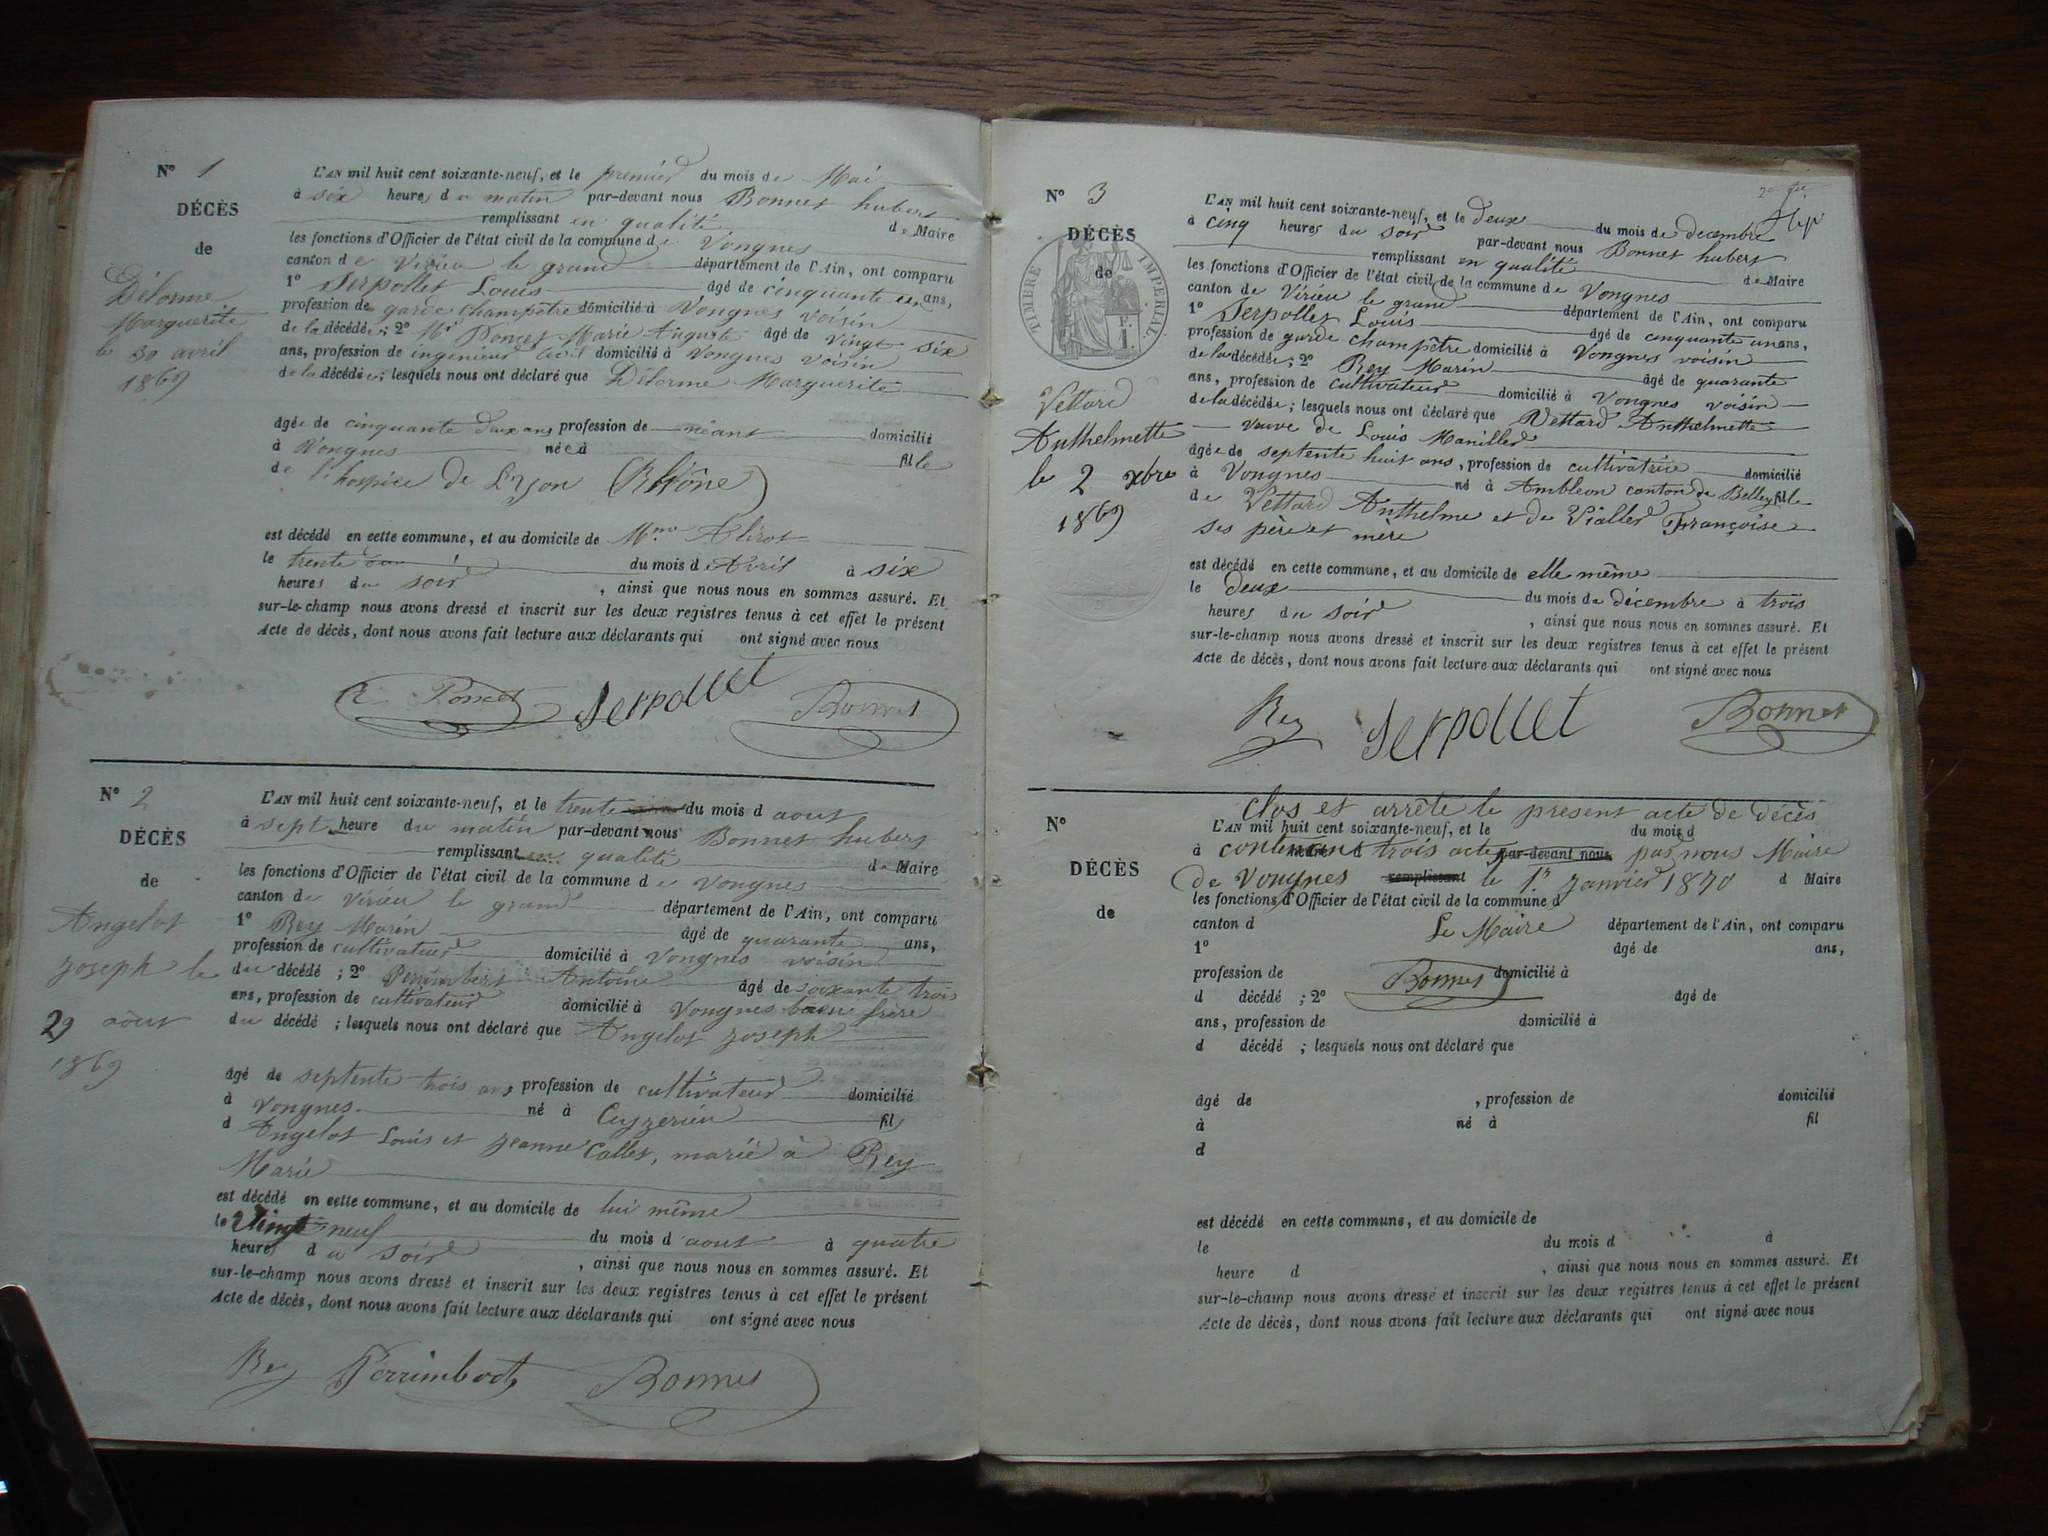 N° 1
DÉCÈS
de
Délorme
Marguerite
le 30 avril
1869
L'AN mil huit cent soixante-neuf, et le premier du mois de Mai
à six heures du matin par-devant nous Bonnet hubert
remplissant en qualité de Maire
les fonctions d'Officier de l'état civil de la commune de Vongnes
canton de Virieu le grand département de l'Ain, ont comparu
1° Serpollet Louis âgé de cinquante un ans,
profession de garde champêtre domicilié à Vongnes voisin
de la décédée; 2° Mr Poncet Marie Auguste âgé de vingt six
ans, profession de ingenieur civil domicilié à Vongnes voisin
de la décédée; lesquels nous ont déclaré que Délorme Marguerite
âgée de cinquante deux ans profession de néant domicilié
à Vongnes née à fille
de l'hospice de Lyon (Rhône)
est décédé en cette commune, et au domicile de Mme
le trente du mois d Avril à six
heures du soir, ainsi que nous nous en sommes assuré. Et
sur-le-champ nous avons dressé et inscrit sur les deux registres tenus à cet effet le présent
Acte de décès, dont nous avons fait lecture aux déclarants qui ont signé avec nous
Poncet serpollet Bonnet
N° 2
DÉCÈS
de
Angelot
Joseph le
29 août
1869
L'AN mil huit cent soixante-neuf, et le trente du mois d aout
à sept heure du matin par-devant nous Bonnet hubert
remplissant en qualité de Maire
les fonctions d'Officier de l'état civil de la commune de Vongnes
canton de Virieu le grand département de l'Ain, ont comparu
1° Rey Marin âgé de quarante ans,
profession de cultivateur domicilié à Vongnes voisin
du décédé; 2° Perrimbert Antoine âgé de soixante trois
ans, profession de cultivateur domicilié à Vongnes beau frère
du décédé; lesquels nous ont déclaré que Angelot Joseph
âgé de septente trois ans profession de cultivateur domicilié
à Vongnes né à Ceyzerieu fils
d Angelot Louis et Jeanne Callet, marié à Rey
Marie
est décédé en cette commune, et au domicile de lui même
le Vingt neuf du mois d aout à quatre
heures du soir, ainsi que nous nous en sommes assuré. Et
sur-le-champ nous avons dressé et inscrit sur les deux registres tenus à cet effet le présent
Acte de décès, dont nous avons fait lecture aux déclarants qui ont signé avec nous
Rey Perrimbert Bonnet
N° 3
DÉCÈS
de
TIMBRE IMPERIAL
F. 1.
Vettard
Anthelmette
le 2 xbre
1869
L'AN mil huit cent soixante-neuf, et le deux du mois de decembre
à cinq heures du soir par-devant nous Bonnet hubert
remplissant en qualité de Maire
les fonctions d'Officier de l'état civil de la commune de Vongnes
canton de Virieu le grand département de l'Ain, ont comparu
1° Serpollet Louis âgé de cinquante un ans,
profession de garde champêtre domicilié à Vongnes voisin
de la décédée; 2° Rey Marin âgé de quarante
ans, profession de cultivateur domicilié à Vongnes voisin
de la décédée; lesquels nous ont déclaré que Vettard Anthelmette
veuve de Louis Maniller
âgée de septente huit ans, profession de cultivatrice domicilié
à Vongnes né à Ambléon canton de Belley fille
de Vettard Anthelme et de Viallet Françoise
ses père et mère
est décédé en cette commune, et au domicile de elle même
le deux du mois de décembre à trois
heures du soir, ainsi que nous nous en sommes assuré. Et
sur-le-champ nous avons dressé et inscrit sur les deux registres tenus à cet effet le présent
Acte de décès, dont nous avons fait lecture aux déclarants qui ont signé avec nous
Rey serpollet Bonnet
N°
DÉCÈS
de
clos et arrête le present acte de décès
L'AN mil huit cent soixante-neuf, et le du mois d
à contenant trois acte par-devant nous par nous Maire
de Vongnes remplissant le 1er Janvier 1870 d Maire
les fonctions d'Officier de l'état civil de la commune d
canton d Le Maire département de l'Ain, ont comparu
1° âgé de ans,
profession de Bonnet domicilié à
d décédé; 2° âgé de
ans, profession de domicilié à
d décédé; lesquels nous ont déclaré que
âgé de , profession de domicilié
à né à fil
d
est décédé en cette commune, et au domicile de
le du mois d à
heure d , ainsi que nous nous en sommes assuré. Et
sur-le-champ nous avons dressé et inscrit sur les deux registres tenus à cet effet le présent
Acte de décès, dont nous avons fait lecture aux déclarants qui ont signé avec nous